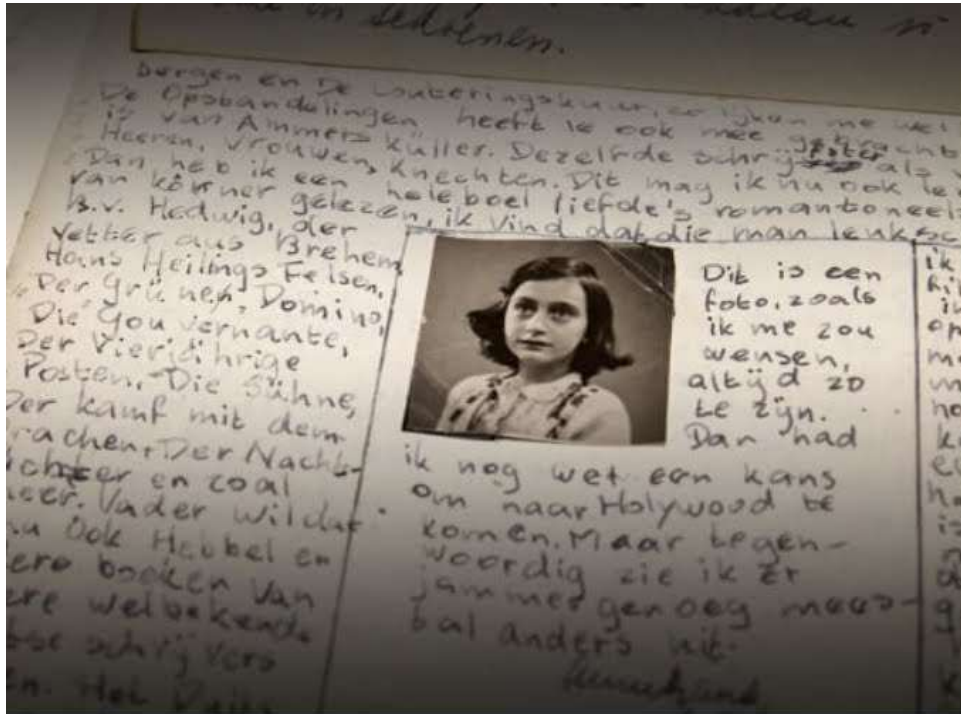 in bedienen.
bergen en De Louteringskuur, ze lijken me wel
De Opstandelingen heeft ie ook mee gebracht
is van Ammers Küller. Dezelfde schrijfster als
Heeren, Vrouwen, Knechten. Dit mag ik nu ook
Dan heb ik een heleboel liefde's romantoneel
van Körner gelezen, ik vind dat die man leuk
B.v. Hedwig, der
Vetter aus Brehem
Hans Heilings Felsen,
Der Grünen Domino,
Die Gouvernante,
Der Vierjährige
Posten, Die Sühne,
Der Kamf mit dem
Drachen, Der Nacht-
en zoal
meer. Vader wil dat
nu ook Hebbel en
boeken van
welbekende
schrijvers
Het
Dit is een
foto, zoals
ik me zou
wensen,
altijd zo
te zijn.
Dan had
ik nog wel een kans
om naar Holywood te
komen. Maar tegen-
woordig zie ik er
jammer genoeg mees-
tal anders uit.
ik